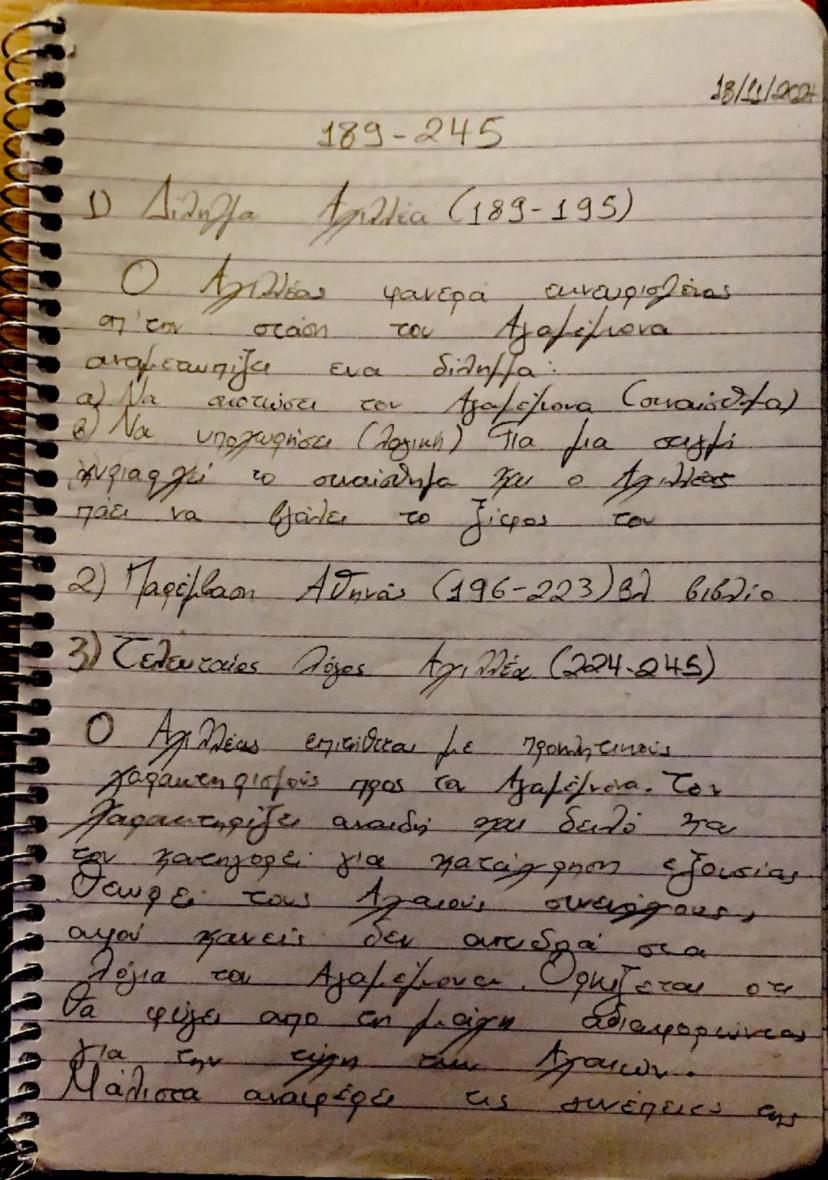 18/11/2024
189-245
1) Δίλημμα Αχιλλέα (189-195)
Ο Αχιλλέας φανερά εκνευρισμένος
απ' την στάση του Αγαμέμνονα
αναμετωπίζει ενα δίλημμα:
α) Να σκοτώσει τον Αγαμέμνονα (συναίσθημα)
β) Να υποχωρήσει (λογική) Για μια στιγμή
κυριαρχεί το συναίσθημα και ο Αχιλλέας
πάει να βγάλει το ξίφος του
2) Παρέμβαση Αθηνάς (196-223) βλ βιβλίο
3) Τελευταίος λόγος Αχιλλέα (224-245)
Ο Αχιλλέας επιτίθεται με προκλητικούς
χαρακτηρισμούς προς τον Αγαμέμνονα. Τον
χαρακτηρίζει αναιδή και δειλό και
τον κατηγορεί για κατάχρηση εξουσίας
Θεωρεί τους Αχαιούς συνενόχους,
αφού κανείς δεν αντιδρά στα
λόγια του Αγαμέμνονα. Ορκίζεται οτι
θα φύγει απο τη μάχη αδιαφορώντας
για την τύχη των Αχαιών.
Μάλιστα αναφέρει τις συνέπειες της